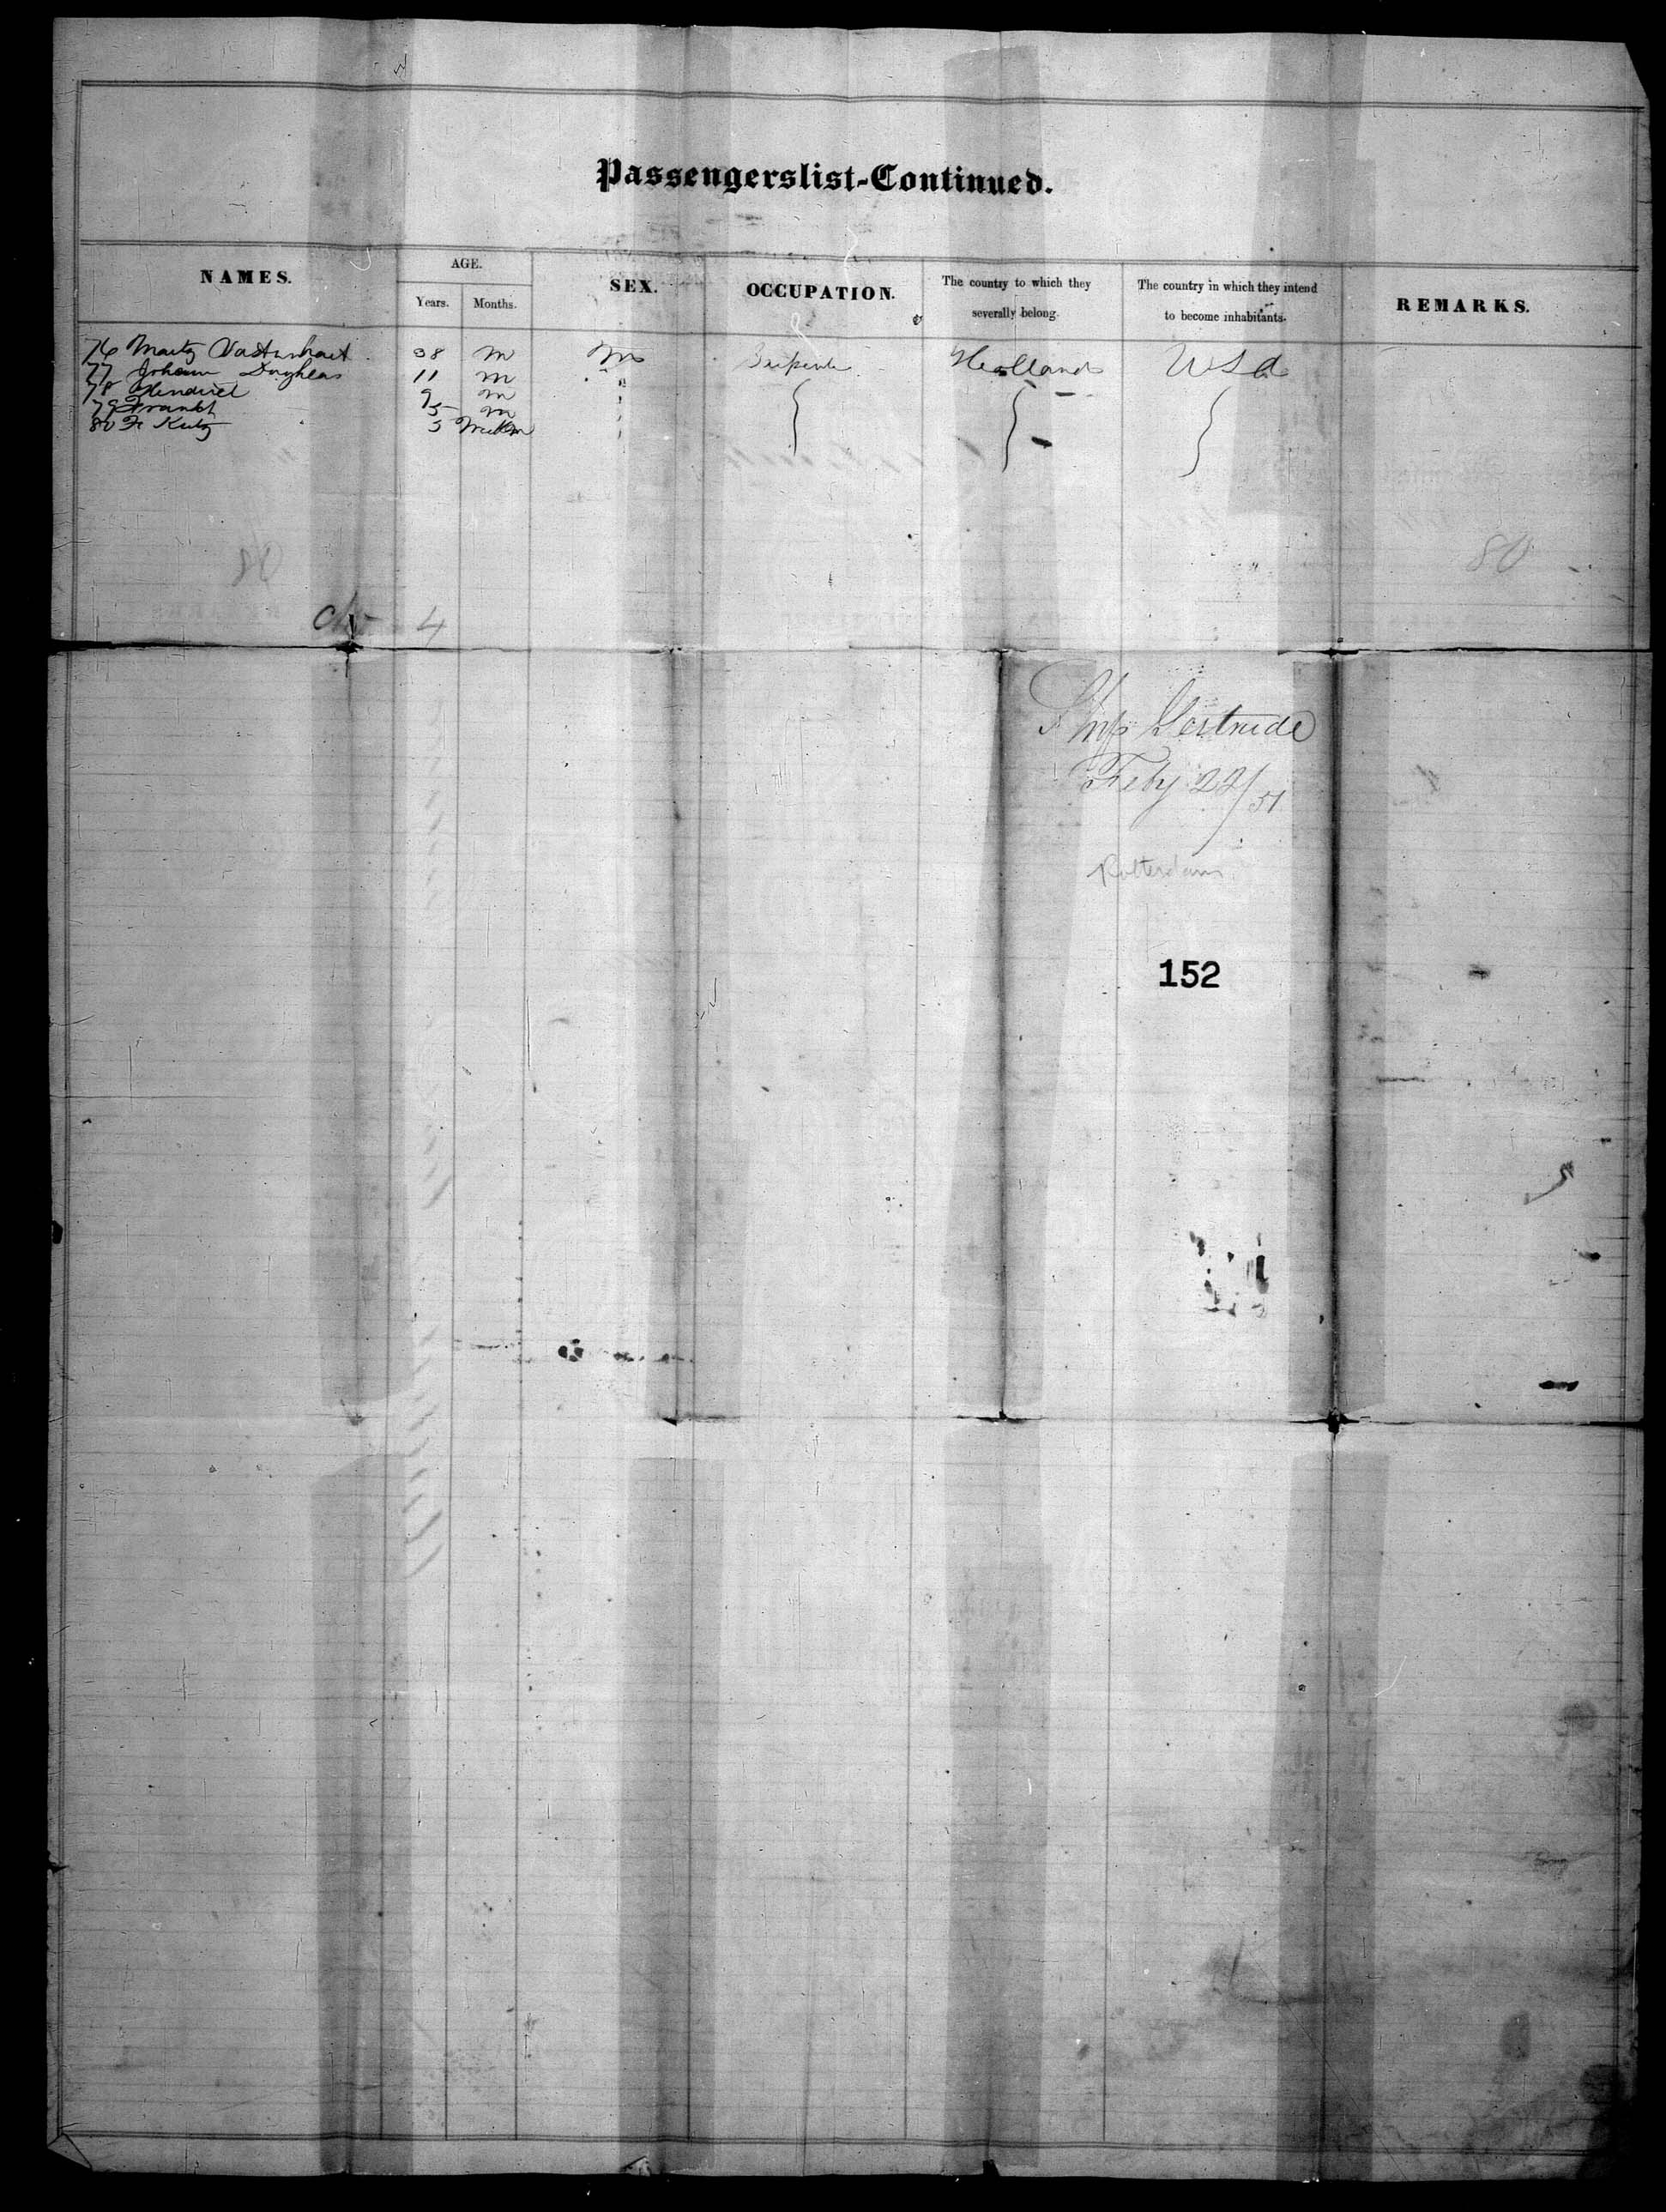 Passengerslist-Continued.
NAMES.
AGE.
Years.
Months.
SEX.
OCCUPATION.
The country to which they
severally belong.
The country in which they intend
to become inhabitants.
REMARKS.
76 38 m m Holland USA
77 Johann 11 m
78 9 m
79 Frankt 5 m
80 F. 3
80
4
Ship Gertrude
Feby 22/51
Rotterdam
152